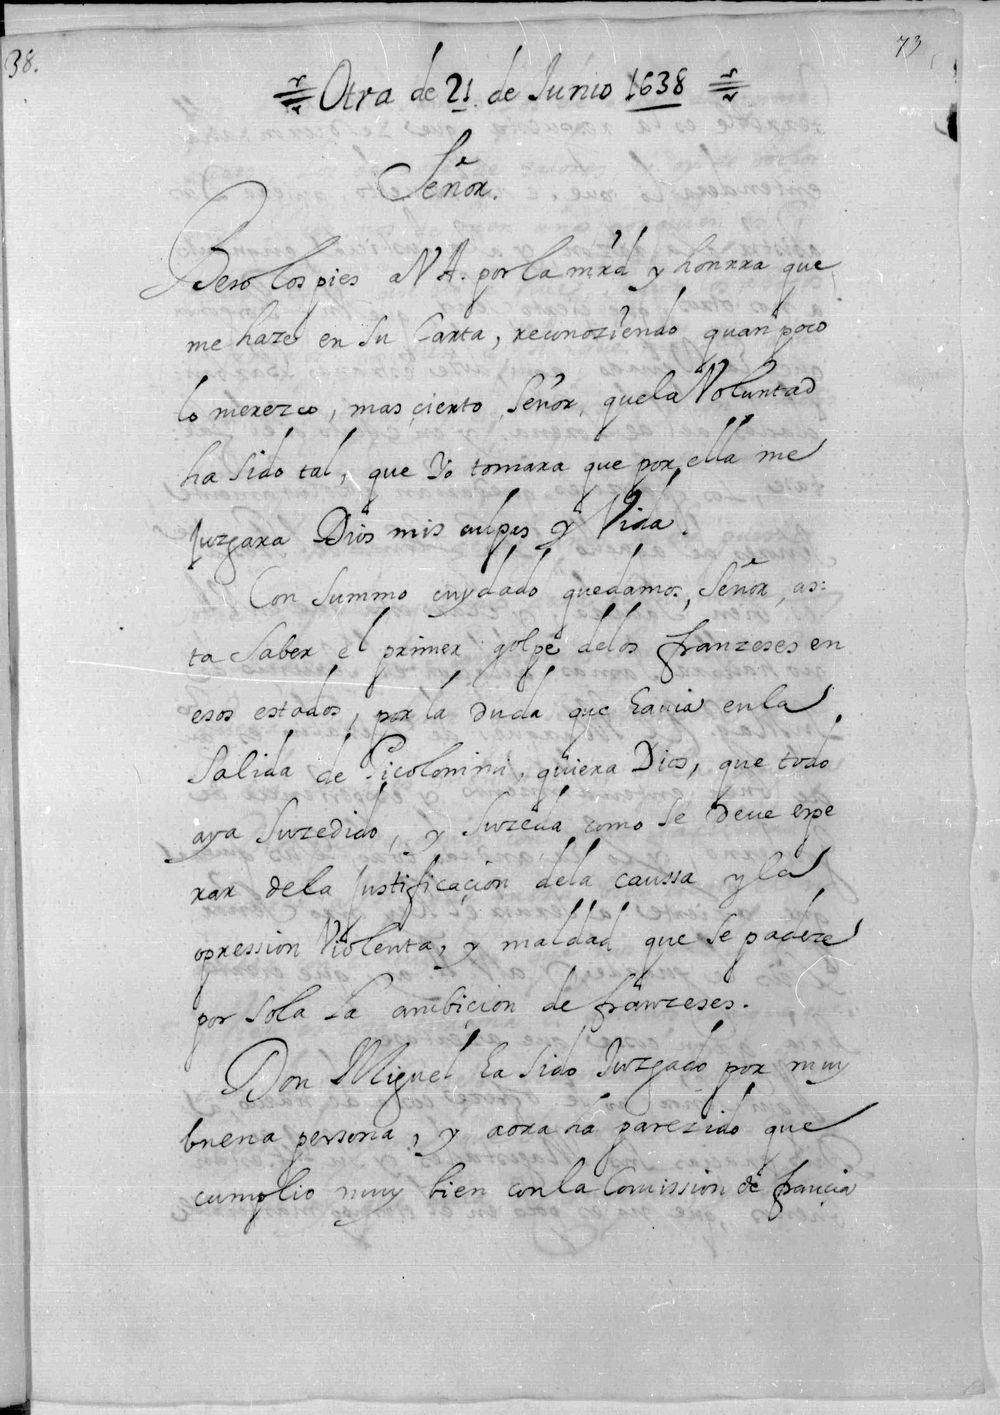 38.
73
Otra de 21 de Junio 1638
Señor.
Beso los pies a V A. por la mrd y honrra que
me haze en su Carta, reconoziendo quan poco
lo merezco, mas çierto, Señor, que la Voluntad
ha sido tal, que Yo tomara que por ella me
Juzgara Dios mis culpas y Vida.
Con summo cuydado quedamos, Señor, as:
ta saber el primer golpe de los franzeses en
esos estados, por la duda que hauia en la
salida de Picolomini, quiera Dios, que todo
aya suzedido, y suzeda como se deue espe
rar de la Justificaçion dela caussa y la
opression Violenta, y maldad que se padeze
por sola la ambiçion de franzeses.
Don Miguel ha sido Juzgado por muy
buena persona, y aora ha parezido que
cumplio muy bien con la Comission de françia